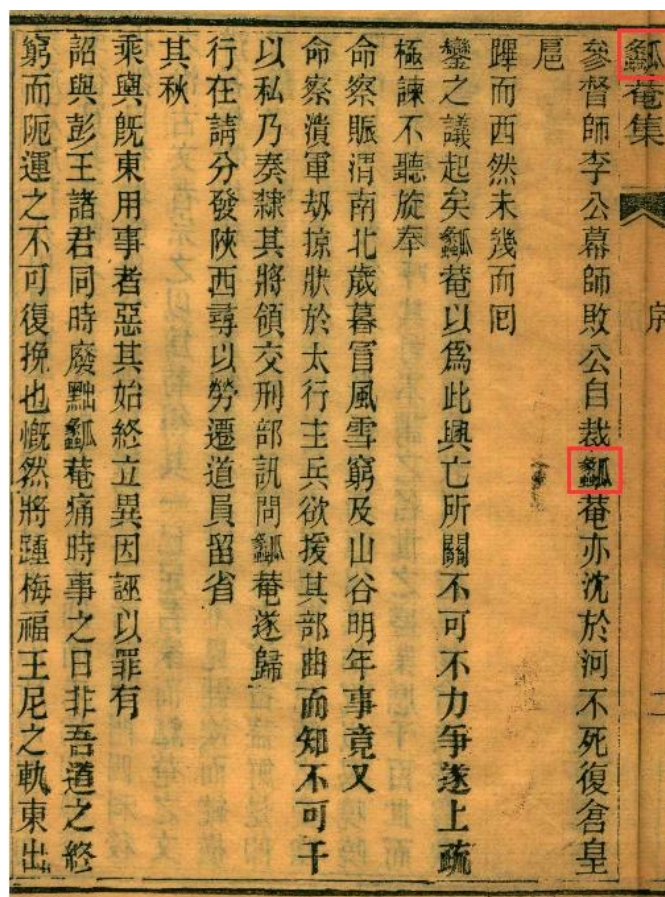 瓥菴集　序　二
參督師李公幕師敗公自裁瓥菴亦沈於河不死復倉皇
扈
蹕而西然未幾而囘
鑾之議起矣瓥菴以爲此興亡所關不可不力爭遂上疏
極諫不聽旋奉
命察賑渭南北歲暮冒風雪窮及山谷明年事竟又
命察潰軍刼掠狀於太行主兵欲援其部曲而知不可干
以私乃奏隸其將領交刑部訊問瓥菴遂歸
行在請分發陜西尋以勞遷道員留省
其秋
乘輿旣東用事者惡其始終立異因誣以罪有
詔與彭王諸君同時廢黜瓥菴痛時事之日非吾道之終
窮而阨運之不可復挽也慨然將踵梅福王尼之軌東出